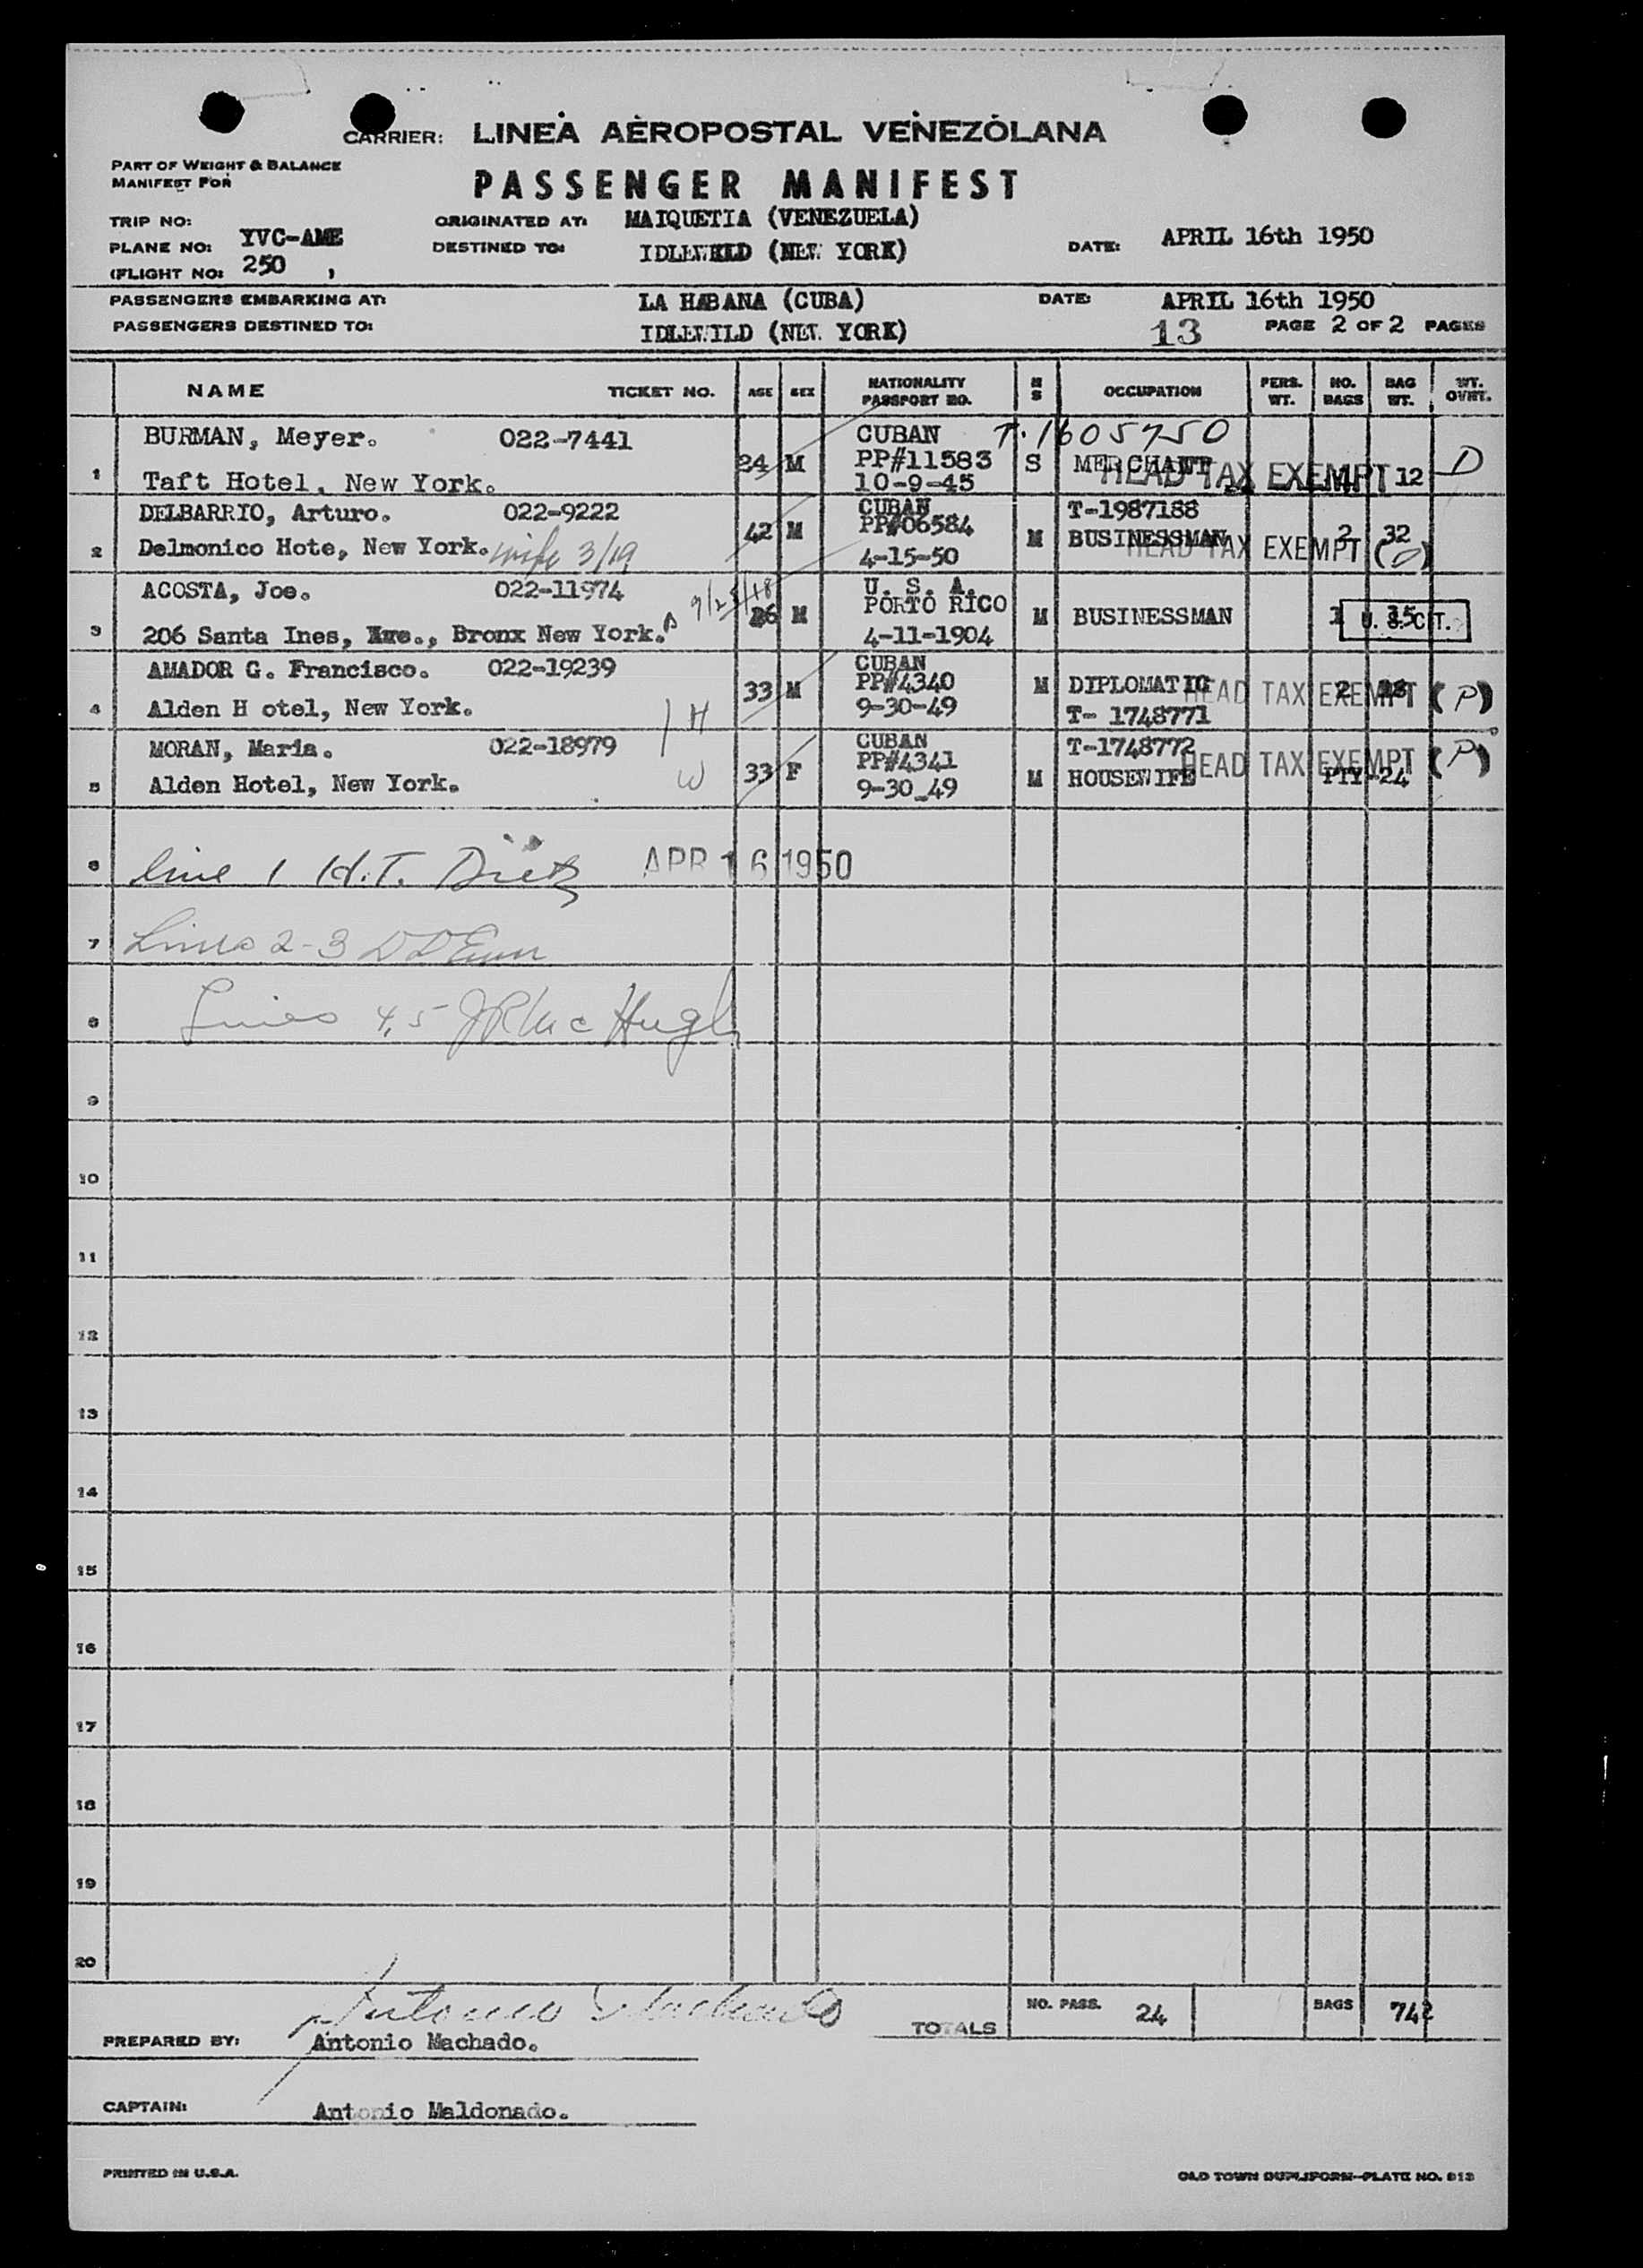 CARRIER: LINEA AEROPOSTAL VENEZOLANA
PART OF WEIGHT & BALANCE
MANIFEST FOR
PASSENGER MANIFEST
TRIP NO:
PLANE NO: YVC-AME
(FLIGHT NO: 250 )
ORIGINATED AT: MAIQUETIA (VENEZUELA)
DESTINED TO: IDLEWILD (NEW YORK)
DATE: APRIL 16th 1950
PASSENGERS EMBARKING AT: LA HABANA (CUBA) DATE: APRIL 16th 1950
PASSENGERS DESTINED TO: IDLEWILD (NEW YORK) 13 PAGE 2 OF 2 PAGES
NAME TICKET NO. AGE SEX NATIONALITY PASSPORT NO. M S OCCUPATION PERS. WT. NO. BAGS BAG WT. WT. OVHT.
BURMAN, Meyer. 022-7441 CUBAN T-1605750
1 24 M PP#11583 S MERCHANT HEAD TAX EXEMPT 12 D
Taft Hotel, New York. 10-9-45
DELBARRIO, Arturo. 022-9222 CUBAN T-1987188
2 42 M PP#06584 M BUSINESSMAN HEAD TAX EXEMPT 2 32 (D)
Delmonico Hote, New York. wife 3/19 4-15-50
ACOSTA, Joe. 022-11974 U. S. A.
3 M PORTO RICO M BUSINESSMAN 1 15 U. S. CIT.
206 Santa Ines, Ave., Bronx New York. 4-11-1904
AMADOR G. Francisco. 022-19239 CUBAN
4 33 M PP#4340 M DIPLOMATIC HEAD TAX EXEMPT 2 (P)
Alden H otel, New York. H 9-30-49 T- 1748771
MORAN, Maria. 022-18979 CUBAN T-1748772
5 33 F PP#4341 M HOUSEWIFE HEAD TAX EXEMPT PTY-24 (P)
Alden Hotel, New York. W 9-30-49
6 line 1 H.T. APR 16 1950
7 Lines 2-3
8 Lines 4,5 JR McHugh
9
10
11
12
13
14
15
16
17
18
19
20
Antonio Machado
TOTALS NO. PASS. 24 BAGS 742
PREPARED BY: Antonio Machado.
CAPTAIN: Antonio Maldonado.
PRINTED IN U.S.A. OLD TOWN DUPLIFORM-PLATE NO. 813